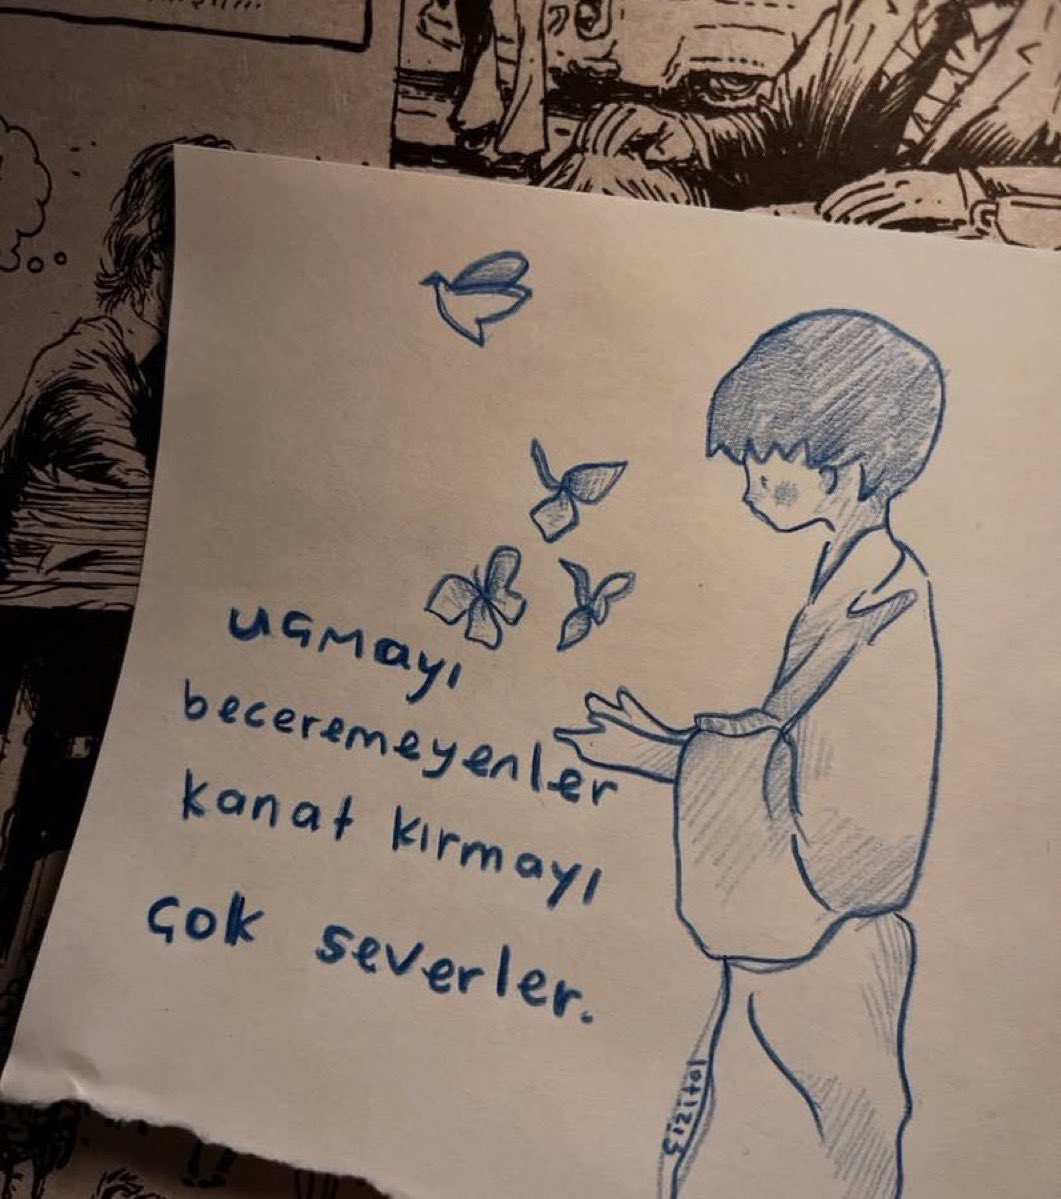 uçmayı
beceremeyenler
kanat kırmayı
çok severler.
çizitol